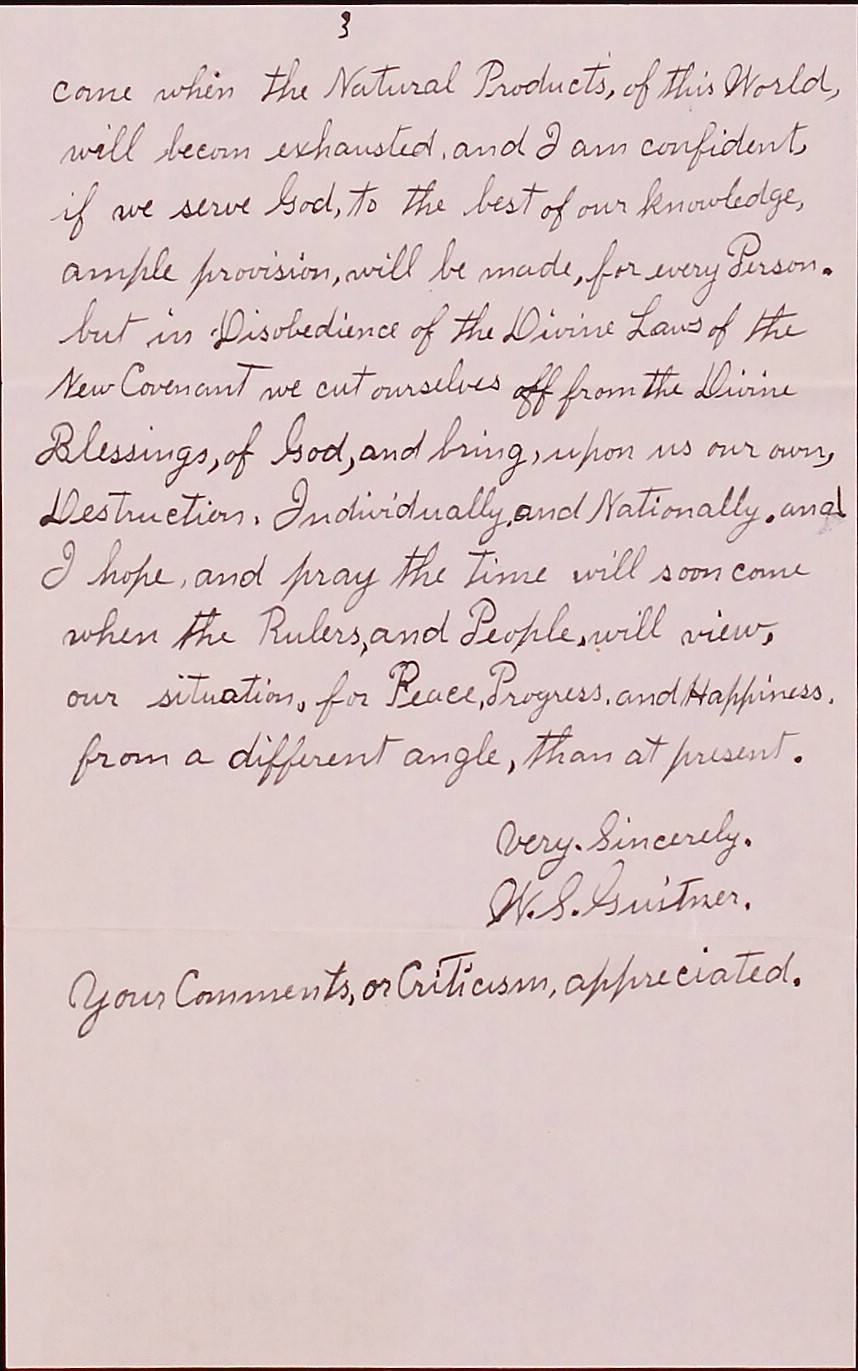 3
come when the Natural Products, of this World,
will becom exhausted, and I am confident,
if we serve God, to the best of our knowledge,
ample provision, will be made, for every Person.
but in Disobedience of the Divine Laws of the
New Covenant we cut ourselves off from the Divine
Blessings, of God, and bring, upon us our own,
Destruction. Individually, and Nationally. and
I hope, and pray the time will soon come
when the Rulers, and People, will view,
our situation, for Peace, Progress, and Happiness.
from a different angle, than at present.
Very. Sincerely.
W. S. Guitner.
Your Comments, or Criticism, appreciated.